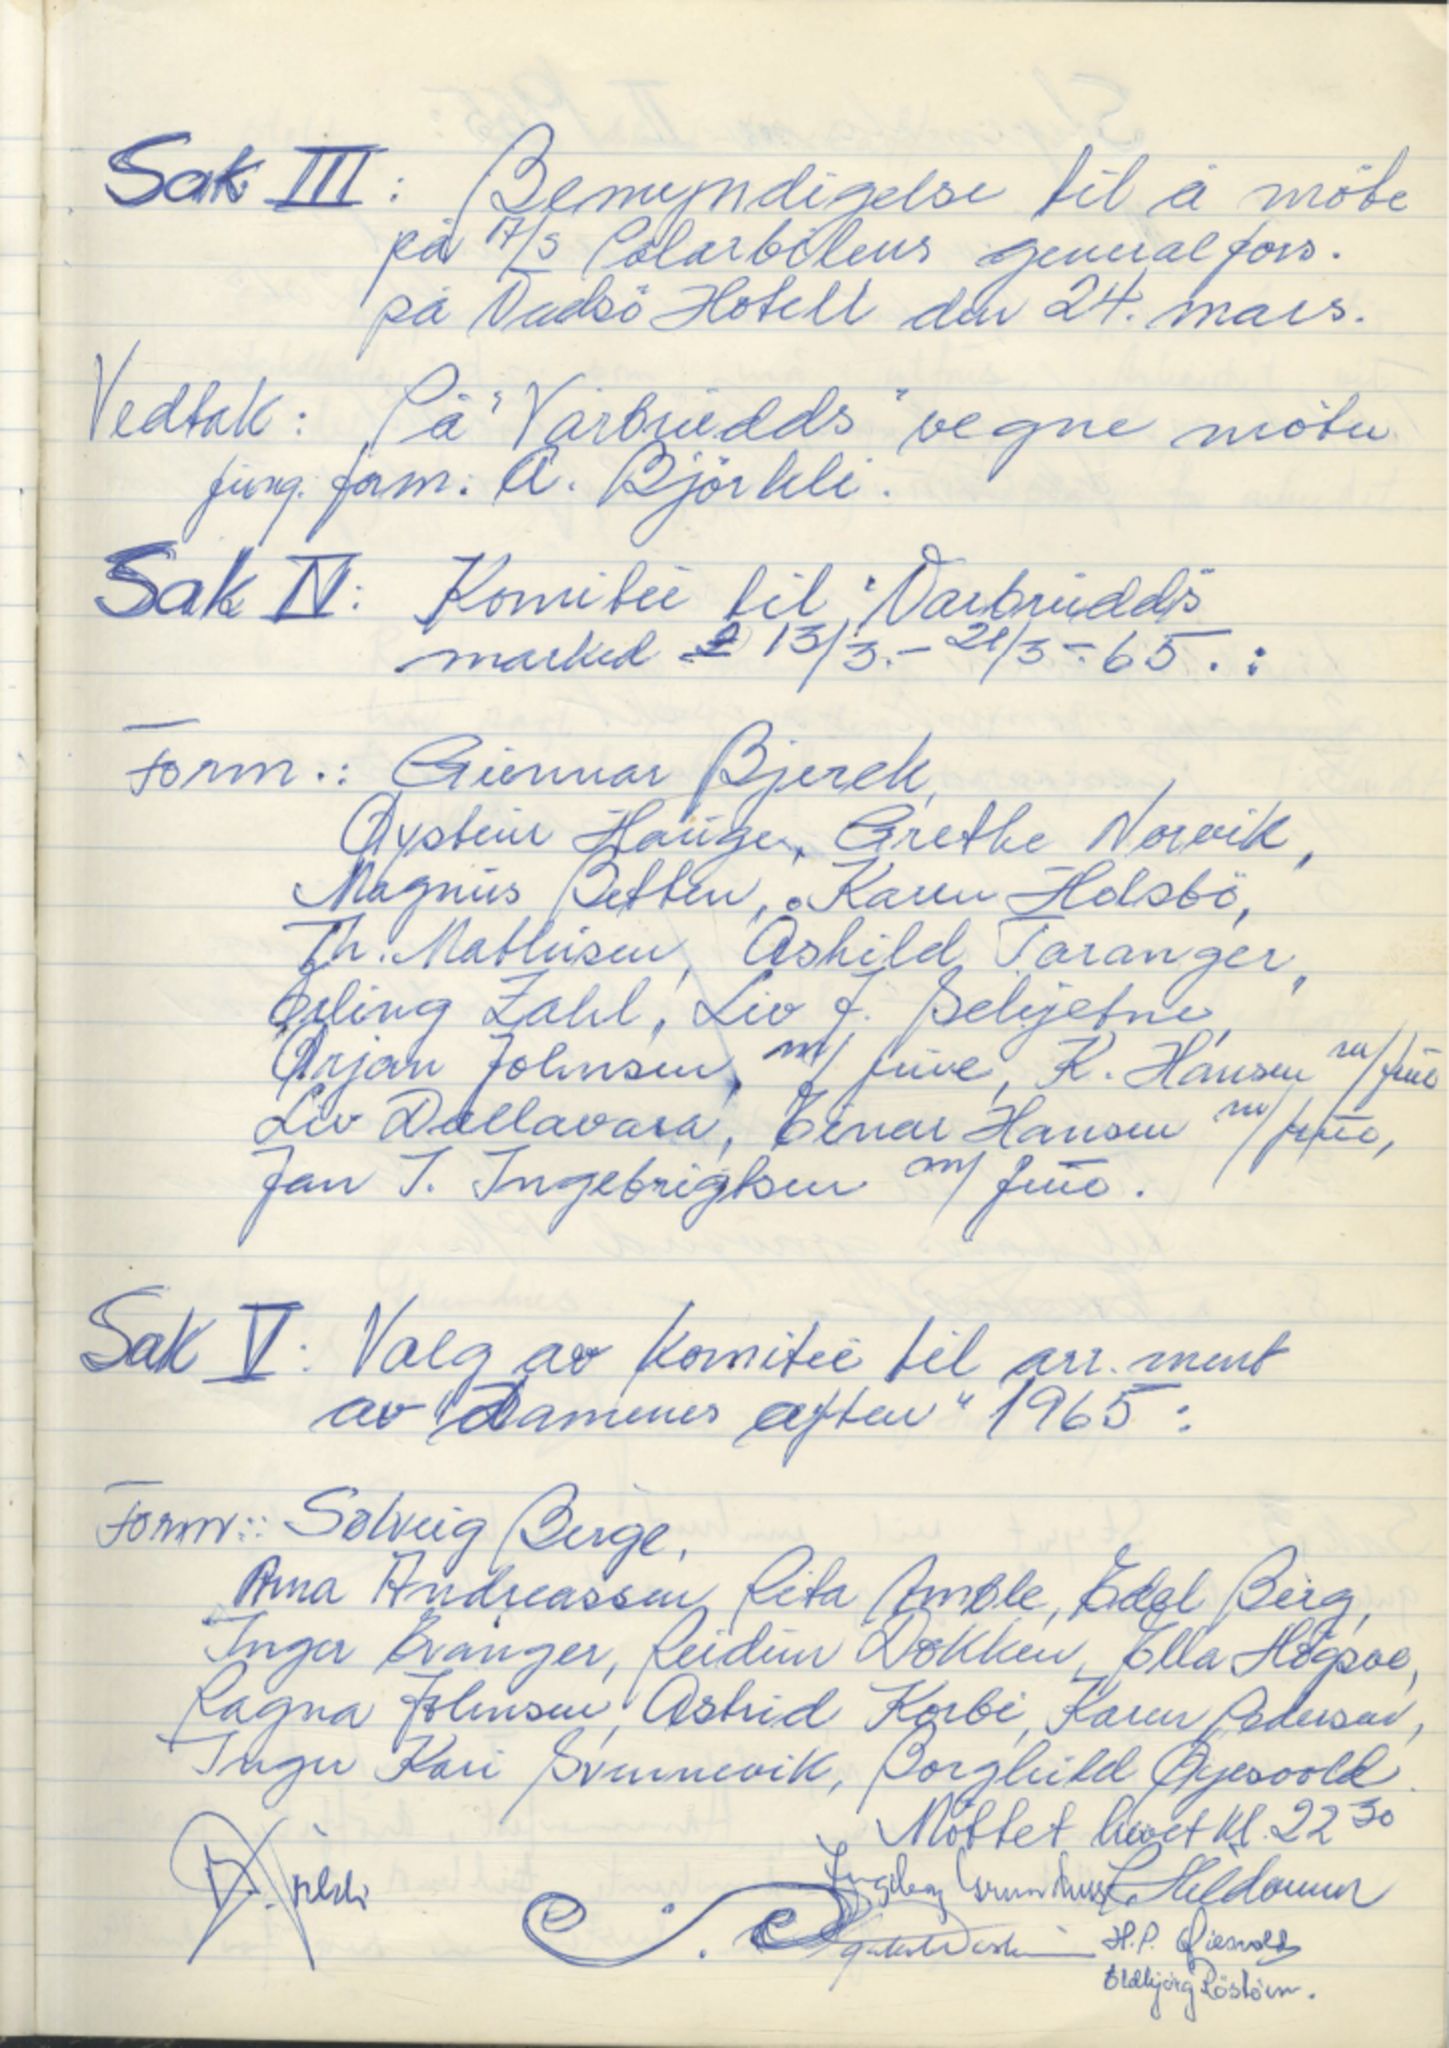 Sak III: Bemyndigelse til å möte
på A/S Polarbilens generalfors.
på Vadsö Hotell den 24. mars.
Vedtak: På "Vårbrudds" vegne möter
fung. form: A. Björkli.
Sak IV: Komiteé til "Vårbrudds"
marked 13/3.- 21/3-65.:
Form.: Gunnar Bjerck,
Øystein Hauge, Grethe Norvik,
Magnus Betten, Karen Holsbö,
Th. Mathisen, Åshild Taranger,
Erling Zahl, Liv J. Selijetne,
Ørjan Johnsen, m/ frue, K. Hansen m/frue
Liv Dallavara, Einar Hansen m/frue,
Jan I. Ingebrigtsen m/ frue.
Sak V: Valg av komiteé til arr.ment
av "Damenes aften" 1965:
Form:: Solveig Berge,
Anna Andreassen, Rita Amble, Edel Berg,
Inger Evanger, Reidun Dokken, Ella Högsve,
Ragna Johnsen, Astrid Korbi, Karen Pedersen,
Inger Kari Svennevik, Borghild Øyesvold.
Möttet hevet kl. 22 30
Ingeborg
H.P.
Oldbjörg Röstöen.